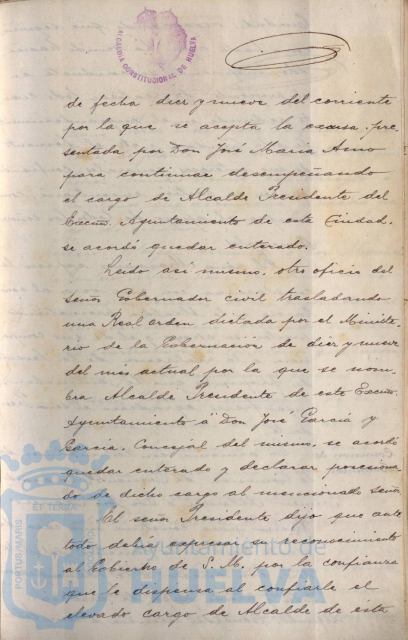 ALCALDIA CONSTITUCIONAL DE HUELVA
de fecha diez y nueve del corriente
por la que se acepta la excusa, pre-
sentada por Don José Maria Amo
para continuar desempeñando
el cargo de Alcalde Presidente del
Excmo. Ayuntamiento de esta Ciudad,
se acordó quedar enterado.
Leido asi mismo, otro oficio del
señor Gobernador civil trasladando
una Real orden dictada por el Ministe-
rio de la Gobernación de diez y nueve
del mes actual por la que se nom-
bra Alcalde Presidente de este Excmo.
Ayuntamiento á Don José Garcia y
Garcia, Concejal del mismo, se acordó
quedar enterado y declarar posesiona-
do de dicho cargo al mencionado señor.
El señor Presidente dijo que ante
todo debia expresar su reconocimiento
al Gobierno de S. M. por la confianza
que le dispensa al confiarle el
elevado cargo de Alcalde de esta
PORTUS MARIS
ET TERRA
Ayuntamiento de
HUELVA